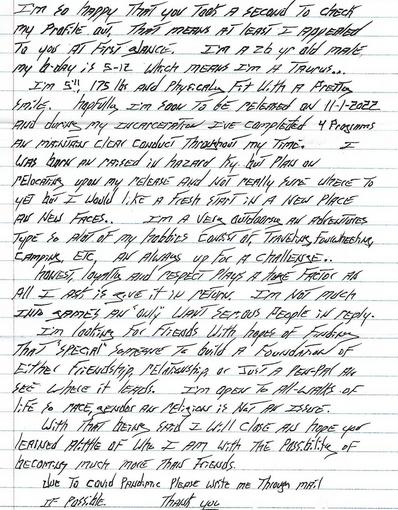 I'm so happy that you took a second to check
my profile out, that means at least I appeared
to you at first glance. I'm a 26 yr old male,
my b-day is 5-12 which means I'm a Taurus...
I'm 5'11, 175 lbs and physically fit with a pretty
smile. hopfully I'm soon to be released on 11-1-2022
and during my incarceration I've completed 4 programs
an maintain clear conduct throughout my time. I
was born an raised in hazard Ky. but plan on
relocating upon my release and not really sure where to
yet but I would like a fresh start in a new place
an new faces.. I'm a very outdoring an adventures
type so alot of my hobbies consist of, traveling, fourwheeling,
camping etc, an always up for a challenge..
honest, loyalty and respect plays a huge factor an
all I ask is give it in return. I'm not much
into games an "only" want serious people in reply.
I'm looking for friends with hopes of finding
that "special" someone to build a foundation of
either friendship, relationship, or just a pen-pal an
see where it leads. I'm open to all-walks of
life so race, gender an religion is not an issue.
With that being said I will close an hope you
learned alittle of who I am with the possibility of
becoming much more than friends.
due to covid pandimic please write me through mail
if possible. Thank you